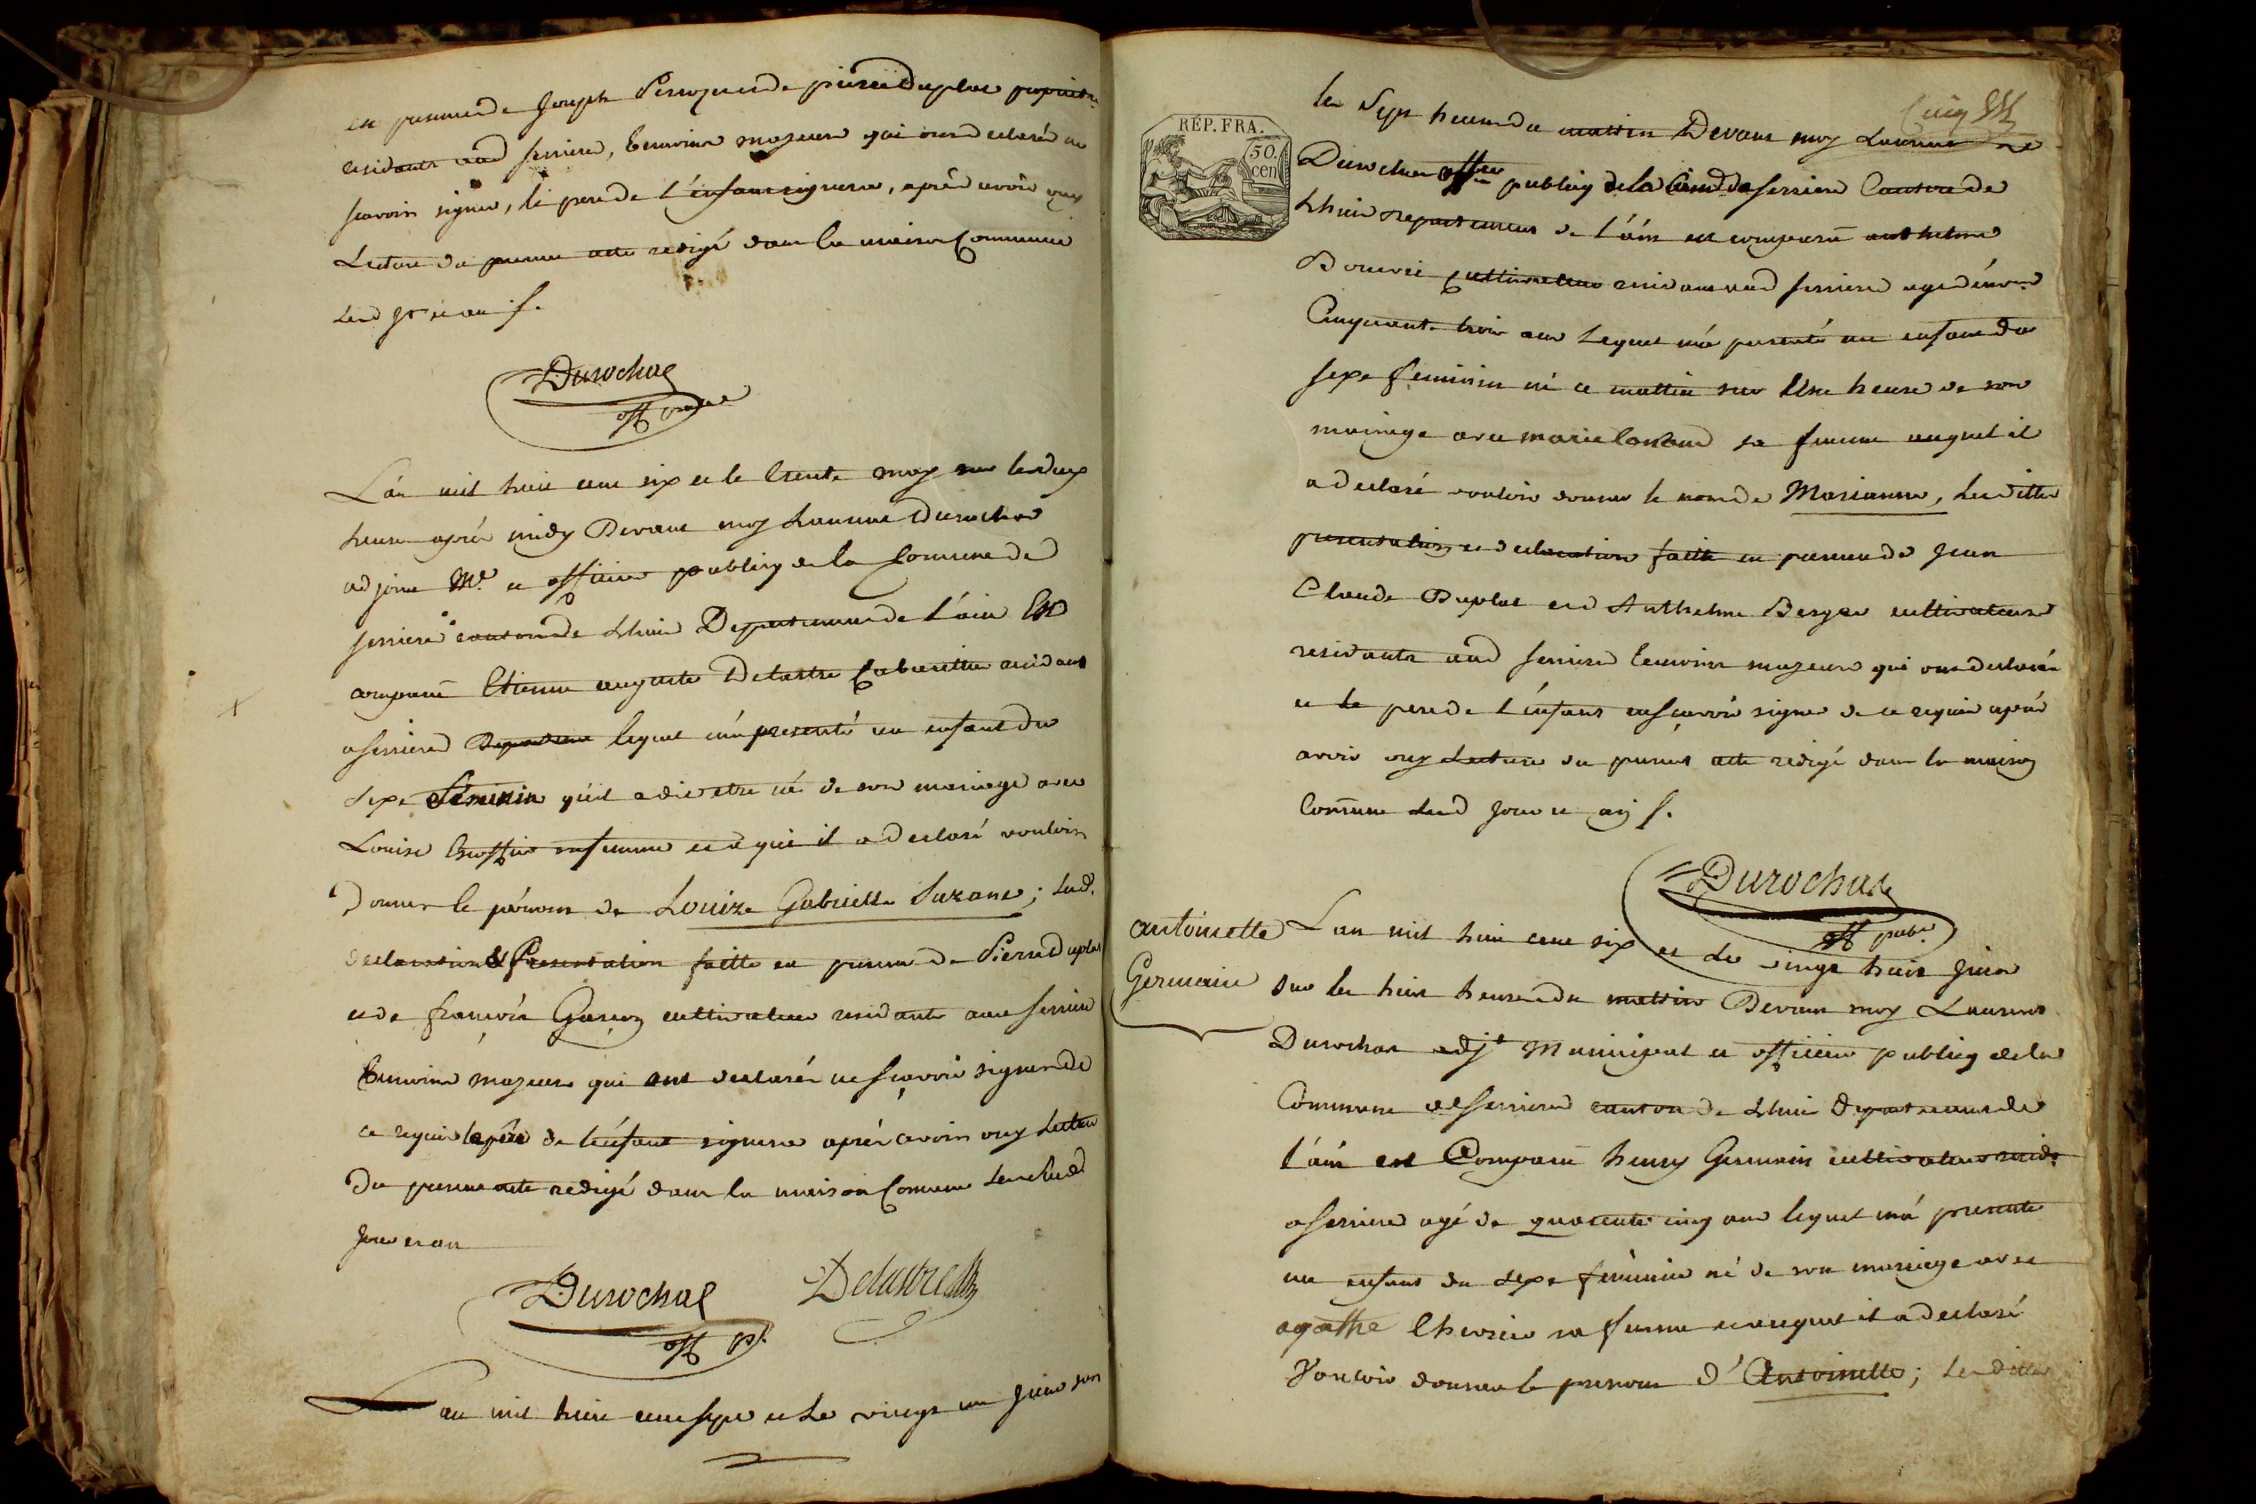 en presence de Joseph et de pierre Duplat
residants aud serriere, temoins majeurs qui ont declarés ne
scavoir signer, le pere de l'enfant signera, après avoir ouy
Lecture du present acte redigé dans la maison Commune
Durochat
off
L'an mil huit cent six et le trente may sur les deux
heures après midy Devant moy Laurent Durochat
adjoint Mal et officier publicq de la Commune de
serriere canton de Lhuis Departement de L'ain Est
comparu Etienne auguste Delastre residant
a serriere lequel m'a presenté un enfant du
sexe féminin qu'il a dit etre né de son mariage avec
Louise sa femme et a qui il a declaré vouloir
Donner le prénom de Louize Gabrielle Suzane; Lad.
declaration & Presentation faitte en presence de Pierre Duplat
et de françois cultivateurs residants aud serriere
temoins majeurs qui ont declarés ne sçavoir signer de
ce requis le père de l'enfant signera après avoir ouy Lecture
Du present acte redigé dans la maison Commune Lesd
jour et an
Durochat Delastre
off p.
L'an mil huit cent sept et Le vingt un juin sur
RÉP. FRA.
50.
cen
les Sept heures du mattin Devant moy Laurent
Durochat offier publiq de la Comd de serriere Canton de
Lhuis departement de L'ain est comparu anthelme
cultivateur residant aud serriere agé d'env.
Cinquante trois ans Lequel m'a presenté un enfant du
sexe feminin né ce mattin sur Une heure de son
mariage avec marie sa femme auquel il
a declaré vouloir donner le nom de Marianne, Lesdittes
presentation et declaration faitte en presence de Jean
Claude Duplat et d'Anthelme Berger cultivateurs
residants aud serriere temoins majeurs qui ont declarés
et le pere de L'enfant ne sçavoir signer de ce requis après
avoir ouy Lecture du present acte redigé dans la maison
Comune Lesd jour et an
Durochat
off pub.
antoinette
Germain
L'an mil huit cent six et le vingt huit Juin
Sur les huit heures du mattin Devant moy Laurent
Durochat adjt Municipal et officier publicq de la
Commune de Serriere canton de Lhuis departement de
L'ain est Comparu henry Germain cultivateur resid.
a serriere agé de quarente cinq ans lequel m'a presenté
un enfant du sexe feminin né de son mariage avec
agathe sa femme et auquel il a declaré
Vouloir donner le prenom d'Antoinette; Lesdittes